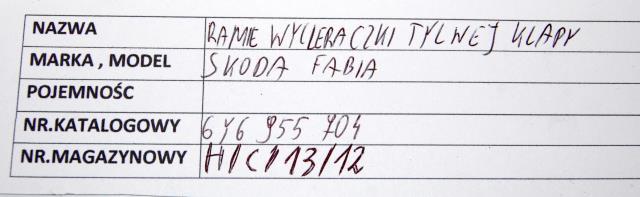 NAZWA RAMIE WYCIERACZKI TYLNEJ KLAPY
MARKA , MODEL SKODA FABIA
POJEMNOŚC
NR.KATALOGOWY 6Y6 955 704
NR.MAGAZYNOWY H/C/13/12